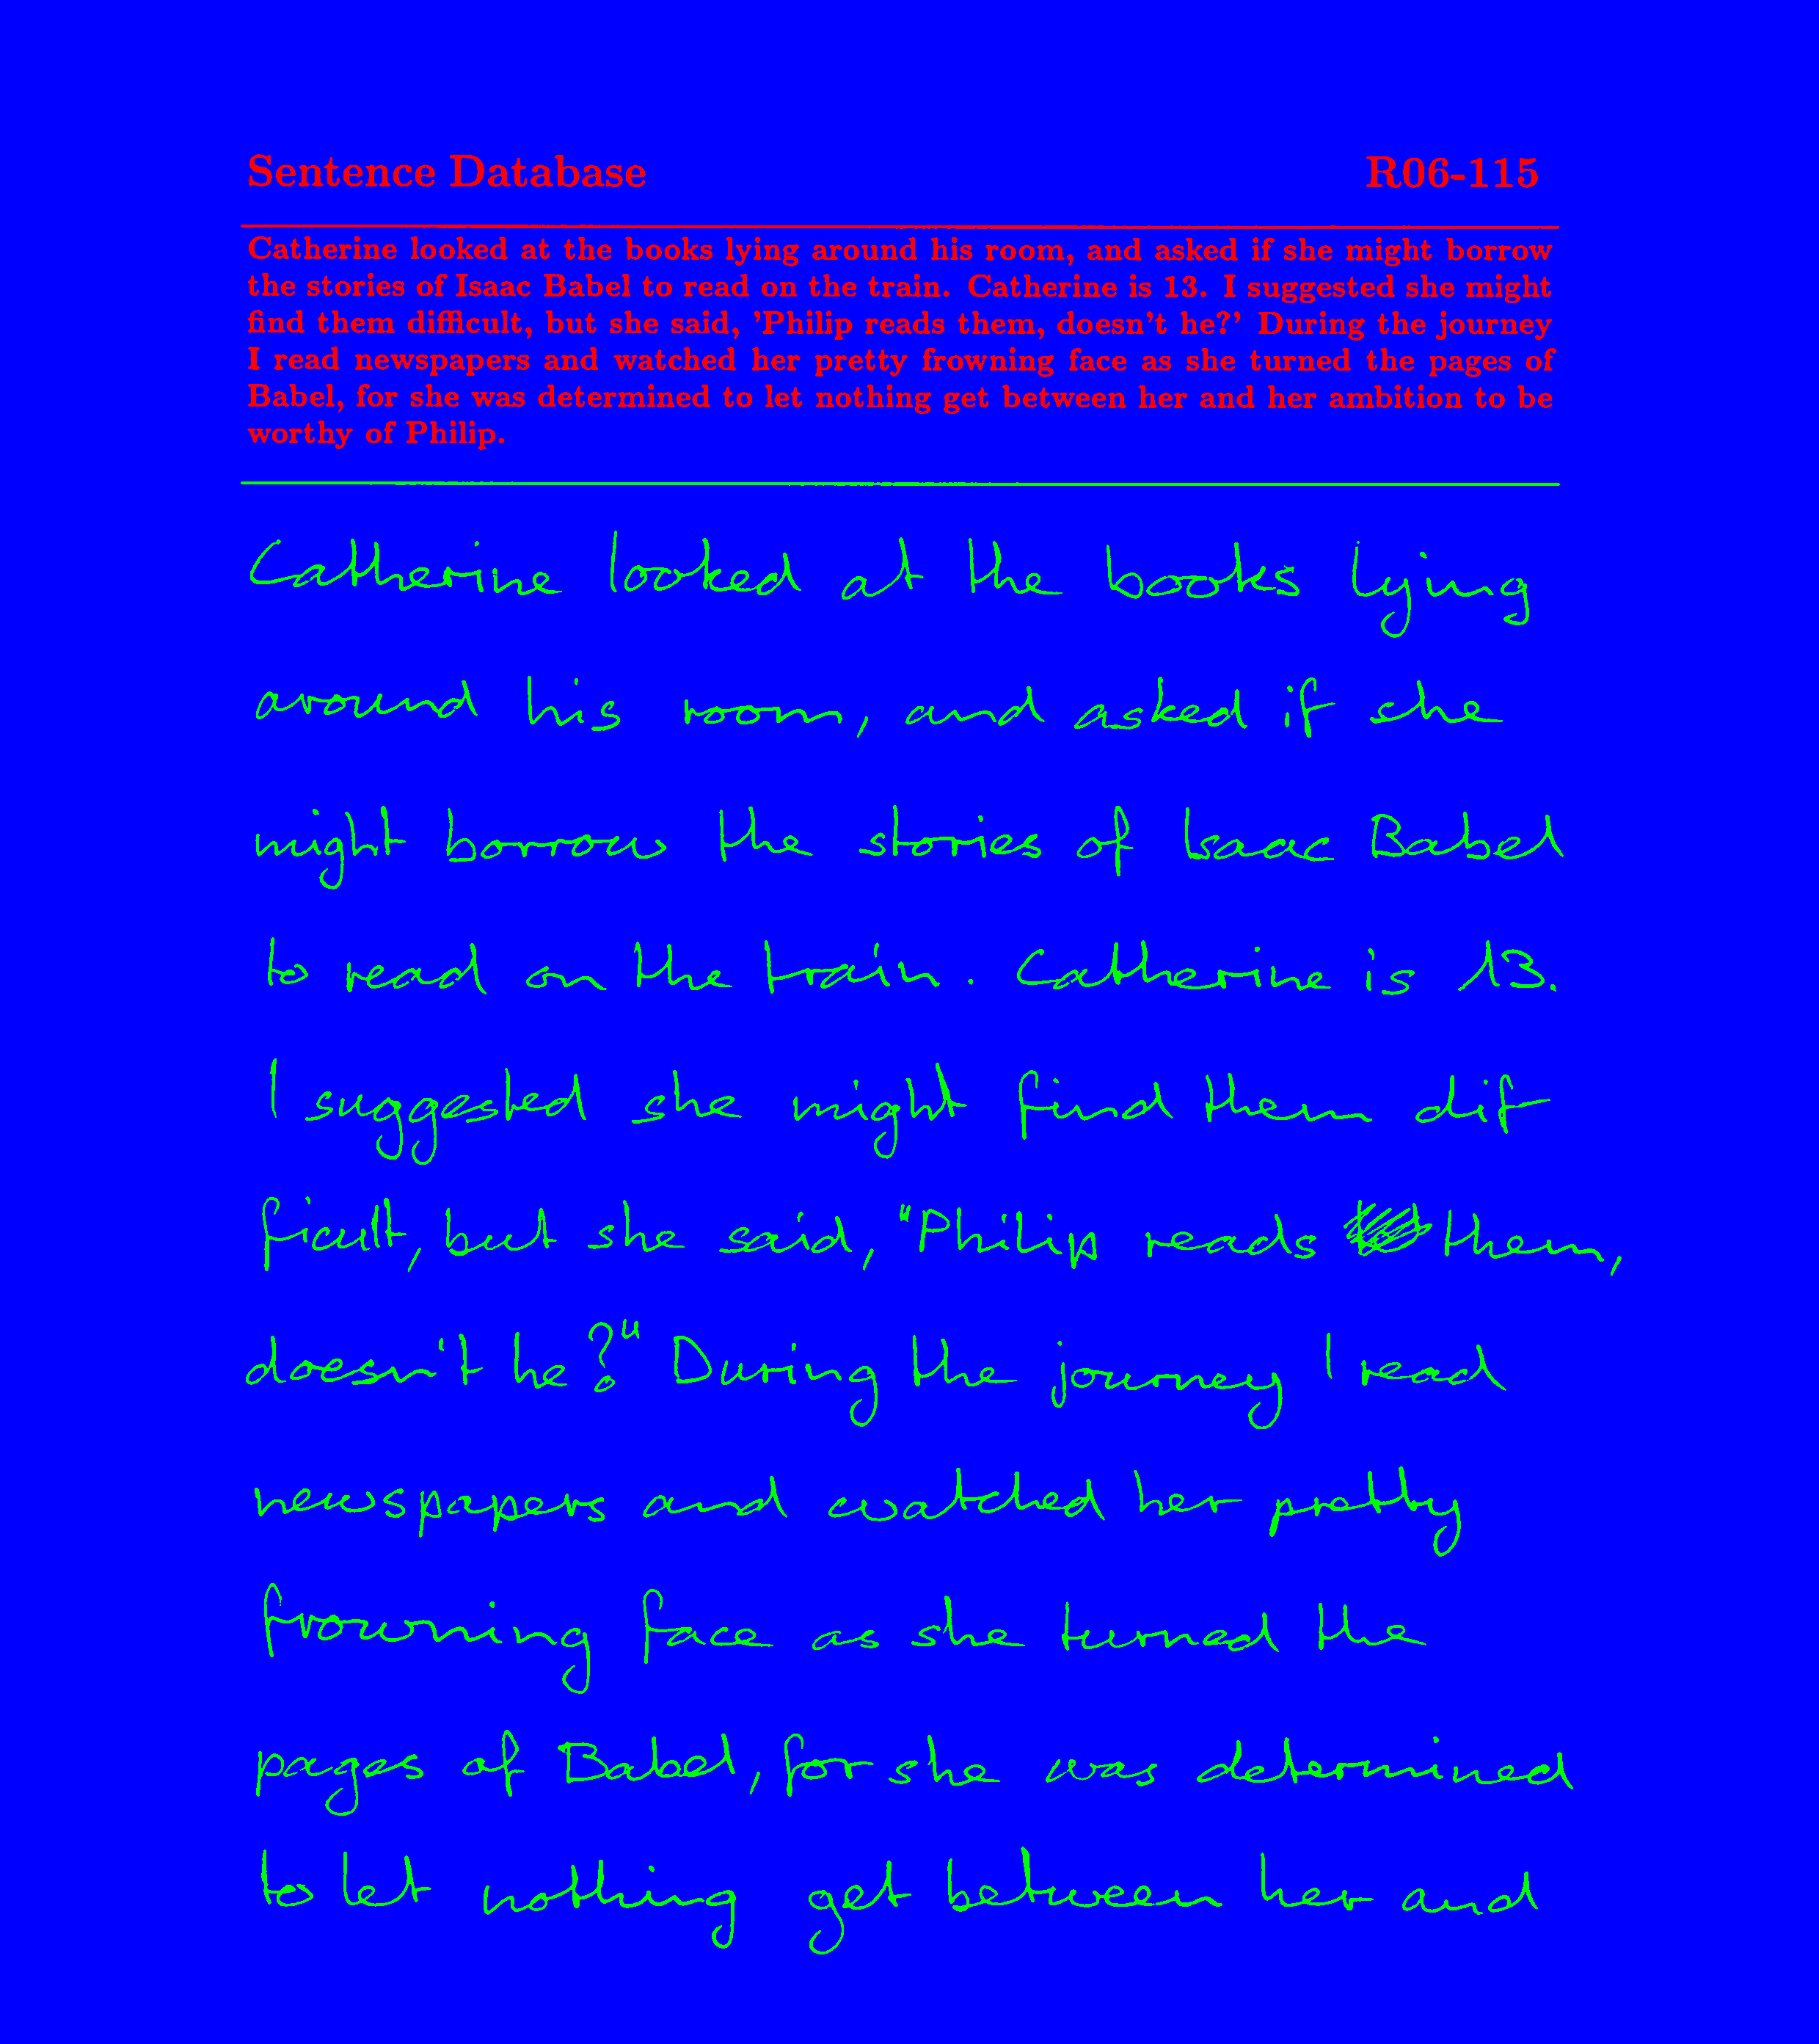 Sentence Database R06-115
Catherine looked at the books lying around his room, and asked if she might borrow
the stories of Isaac Babel to read on the train. Catherine is 13. I suggested she might
find them difficult, but she said, 'Philip reads them, doesn't he?' During the journey
I read newspapers and watched her pretty frowning face as she turned the pages of
Babel, for she was determined to let nothing get between her and her ambition to be
worthy of Philip.
Catherine looked at the books lying
around his room, and asked if she
might borrow the stories of Isaac Babel
to read on the train. Catherine is 13.
I suggested she might find them dif
ficult, but she said, "Philip reads them,
doesn't he?" During the journey I read
newspapers and watched her pretty
frowning face as she turned the
pages of Babel, for she was determined
to let nothing get between her and